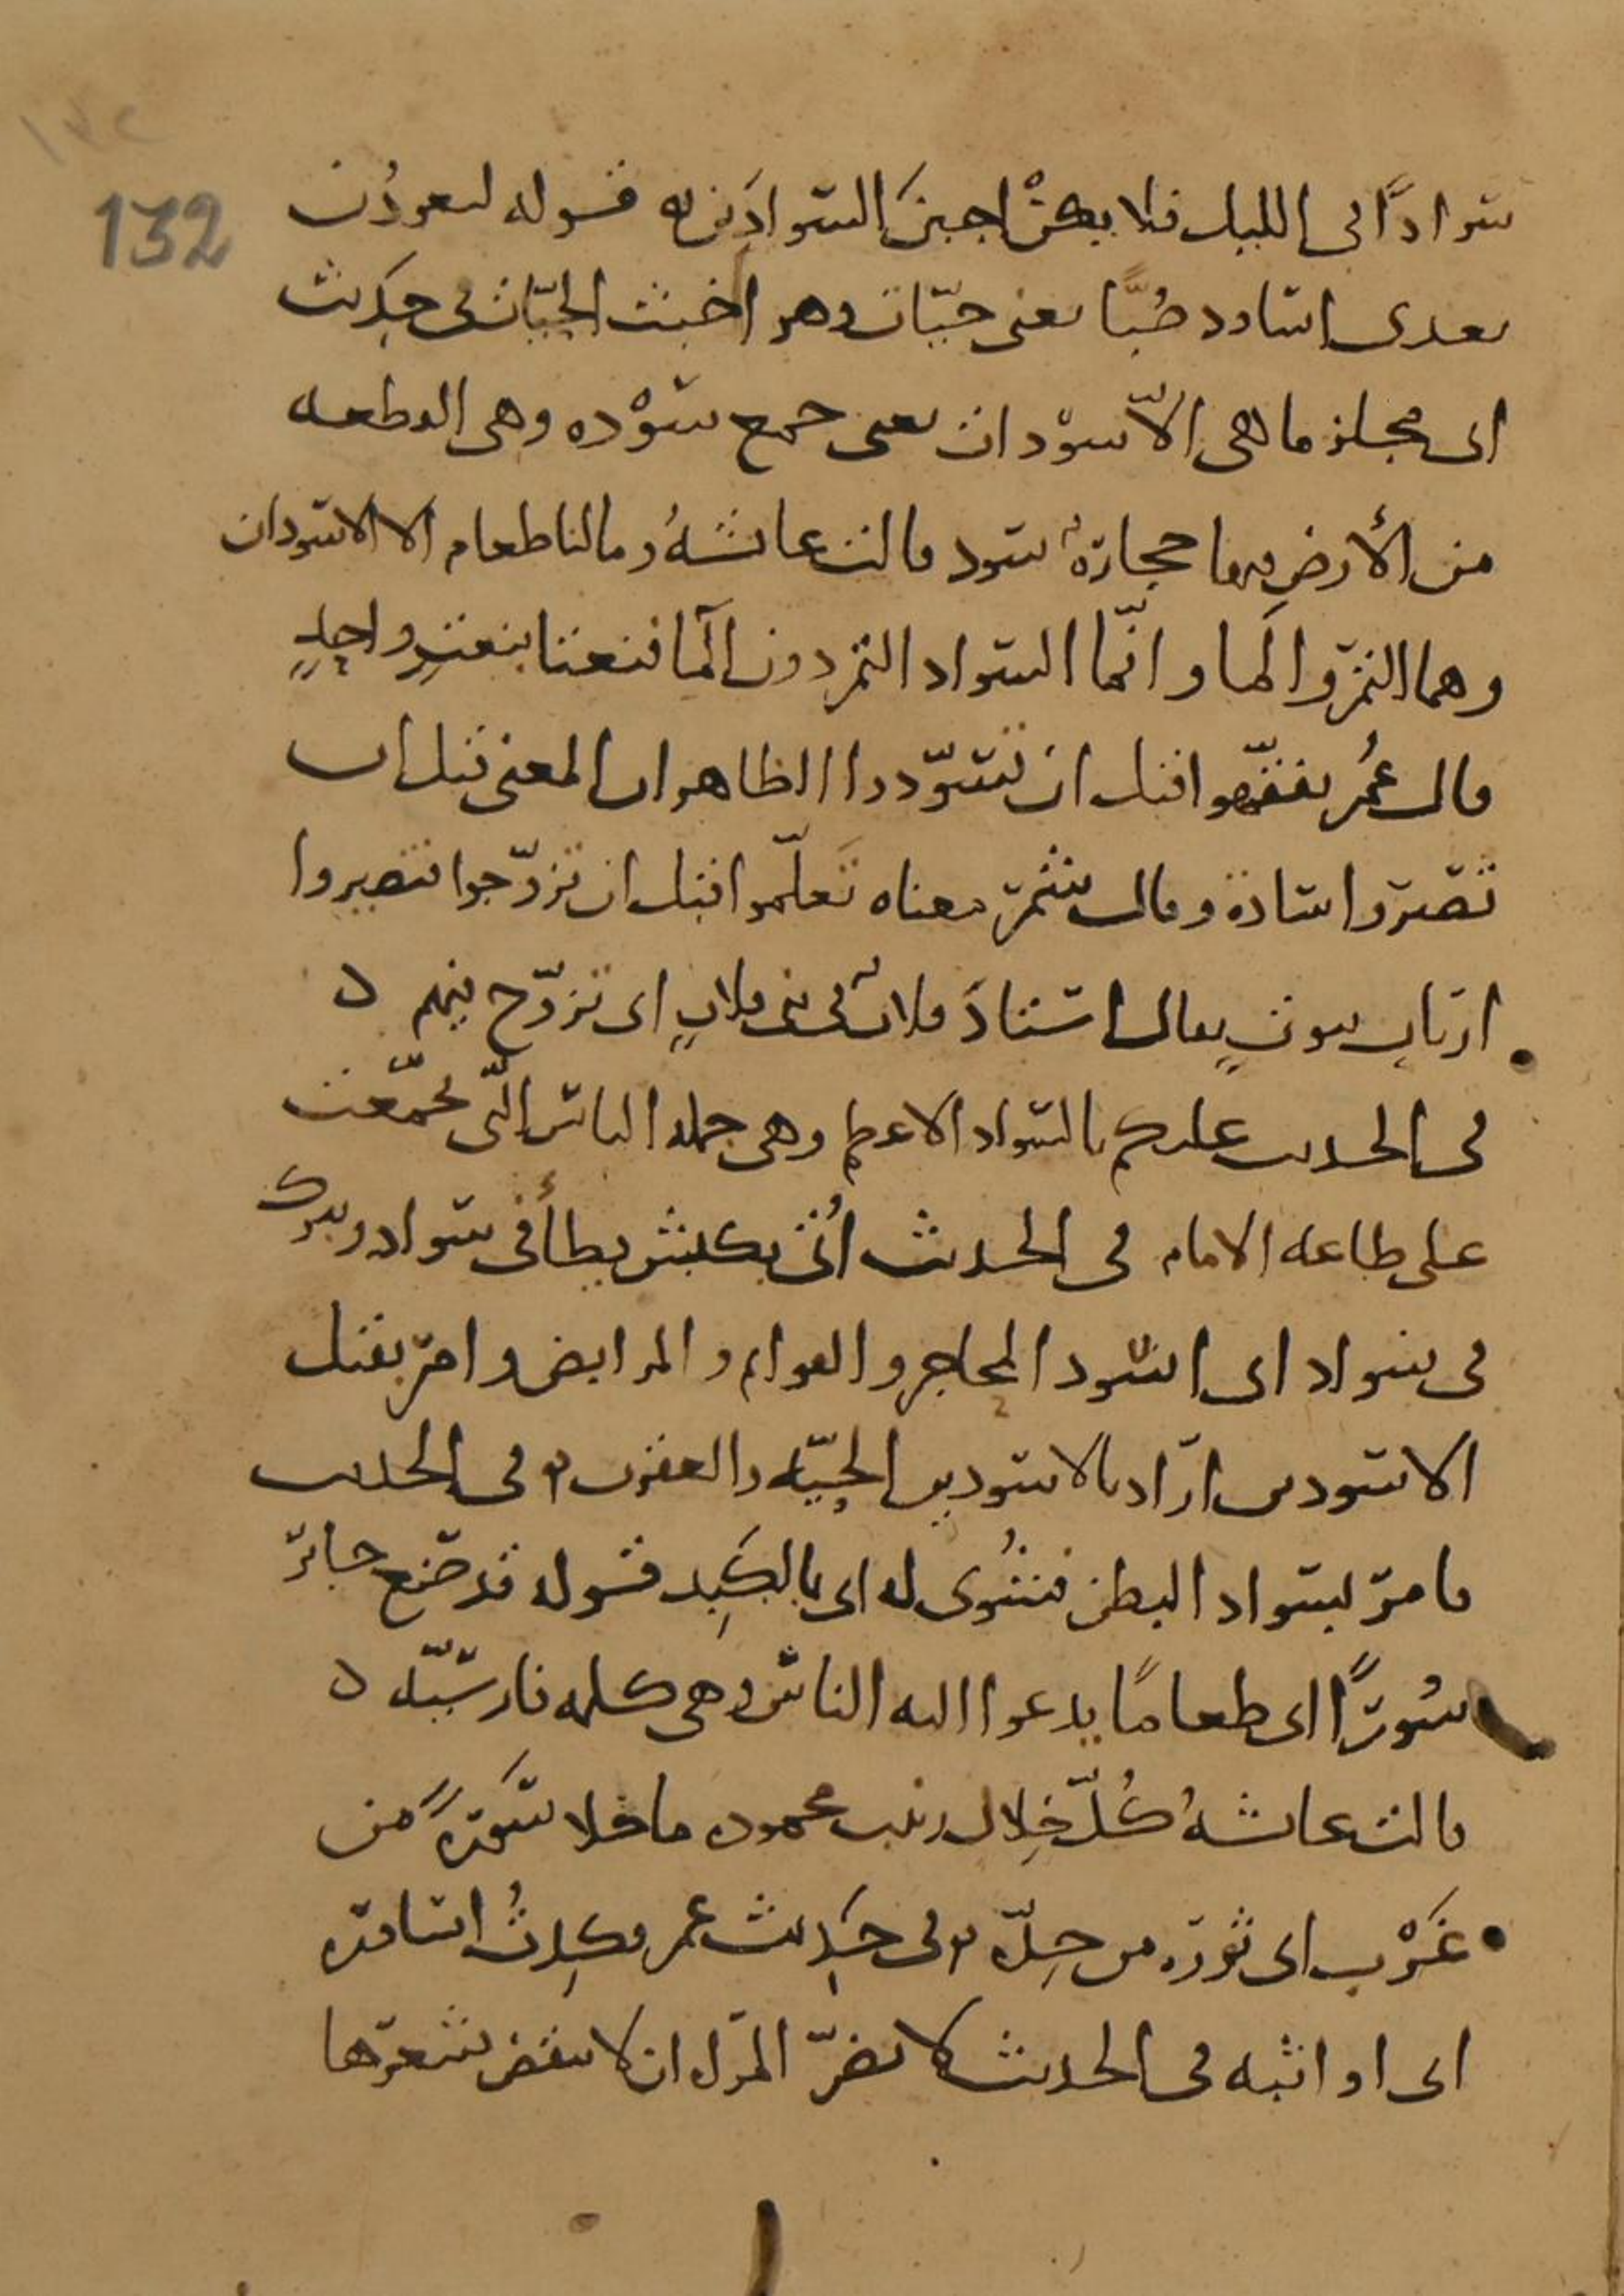 ١٣٢
132
سوادًا بالليل فلا يكن اجبن السوادين قوله لتعودن
بعدي اساود صُبًّا يعني حيّات وهو اخبث الحيّات في حديث
ابي مجلز ما هي الا سودات يعني جمع سَوْده وهي القطعه
من الأرض فيها حجارة سود قالت عائشةُ وما لنا طعام الا الاسودان
وهما التمر والما وانّما السواد التمر دون الما فنعتا بنعتٍ واحدٍ
قال عُمر تفقّهوا قبل ان تسوّدوا الظاهر ان المعنى قبل ان
تصيروا سادة وقال شمر معناه تَعلّموا قبل ان تزوّجوا فتصيروا
ارباب بيوتٍ يقال استادَ فلان في بني فلانٍ اي تزوّج فيهم ه
في الحديث عليكم بالسواد الاعظم وهي جمله الناس الّتي تجمّعت
على طاعه الامام في الحديث اُتي بكبش يطأ في سواد ويبرك
في سواد اى اسود المحاجر والقوايم والمرابض وامر بقتل
الاسودين اراد بالاسودين الحيّه والعقرب وفي الحديث
فامر بسواد البطن فشُوى له اى بالكَبِد قوله قد صنع جابر
سُورًا اى طعامًا يدعوا اليه الناس وهي كلمه فارسيّه ه
قالت عائشهُ كُلّ خِلال زينب محموده ما خلا سَورةً من
غَرْبٍ اى ثورَه من حِدّه وفي حديث عمر فكِدتُ اساوره
اى اواثبه في الحديث لا يضرّ المراه ان لا تنقض شعرها